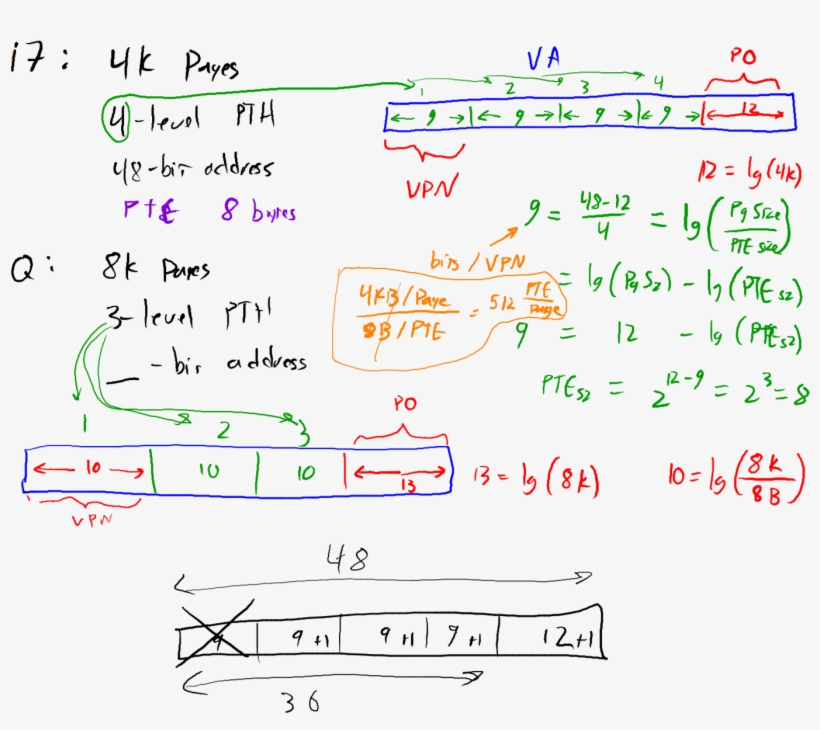 i7: 4k Pages
VA
PO
4-level PTH
1 2 3 4
9 9 9 9 12
48-bit address
VPN
12 = lg(4k)
PTE 8 bytes
9 = 48-12 / 4 = lg(Pg Size / PTE size)
bits / VPN
Q: 8k Pages
= lg(Pg Sz) - lg(PTE sz)
4KB/Page / 8B/PTE = 512 PTE / Page
3-level PTH
9 = 12 - lg(PTE sz)
__ - bit address
PTE sz = 2^12-9 = 2^3 = 8
PO
1 2 3
10 10 10 13
13 = lg(8k)
10 = lg(8k / 8B)
VPN
48
9 9+1 9+1 9+1 12+1
36